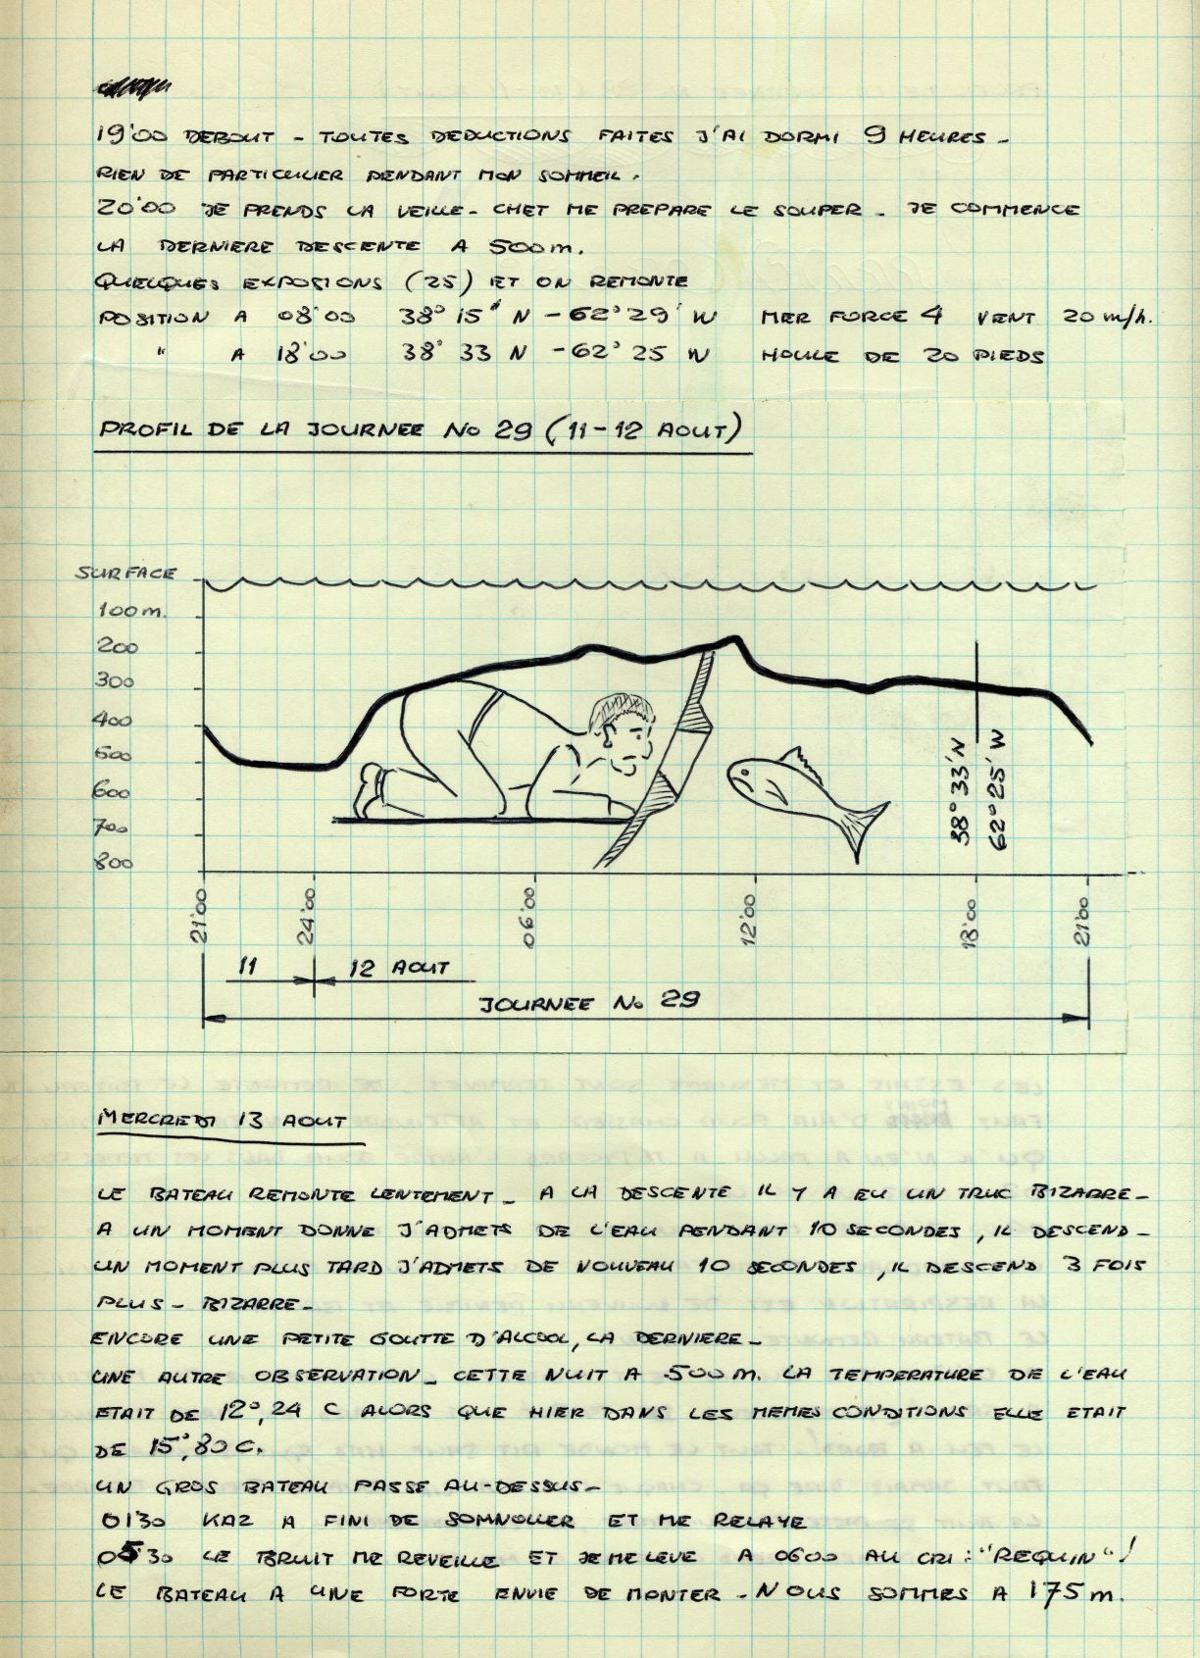 19°00 DEBOUT - TOUTES DEDUCTIONS FAITES J'AI DORMI 9 HEURES -
RIEN DE PARTICULIER PENDANT MON SOMMEIL.
20°00 JE PRENDS LA VEILLE - CHET ME PREPARE LE SOUPER - JE COMMENCE
LA DERNIERE DESCENTE A 500m.
QUELQUES EXPOSIONS (25) ET ON REMONTE
POSITION A 08°00 38° 15' N - 62° 29' W MER FORCE 4 VENT 20 m/h.
" A 18°00 38° 33 N - 62° 25 W HOULE DE 20 PIEDS
PROFIL DE LA JOURNEE No 29 (11-12 AOUT)
SURFACE
100m.
200
300
400
500
600
700
800
38° 33' N
62° 25' W
21°00
24°00
06°00
12°00
18°00
21°00
11
12 AOUT
JOURNEE No 29
MERCREDI 13 AOUT
LE BATEAU REMONTE LENTEMENT - A LA DESCENTE IL Y A EU UN TRUC BIZARRE -
A UN MOMENT DONNE J'ADMETS DE L'EAU PENDANT 10 SECONDES, IL DESCEND -
UN MOMENT PLUS TARD J'ADMETS DE NOUVEAU 10 SECONDES, IL DESCEND 3 FOIS
PLUS - BIZARRE -
ENCORE UNE PETITE GOUTTE D'ALCOOL, LA DERNIERE -
UNE AUTRE OBSERVATION - CETTE NUIT A 500m. LA TEMPERATURE DE L'EAU
ETAIT DE 12°,24 C ALORS QUE HIER DANS LES MEMES CONDITIONS ELLE ETAIT
DE 15°,80 C.
UN GROS BATEAU PASSE AU-DESSUS -
0130 KAZ A FINI DE SOMNOLLER ET ME RELAYE
0530 LE BRUIT ME REVEILLE ET JE ME LEVE A 0600 AU CRI : "REQUIN"!
LE BATEAU A UNE FORTE ENVIE DE MONTER - NOUS SOMMES A 175 m.